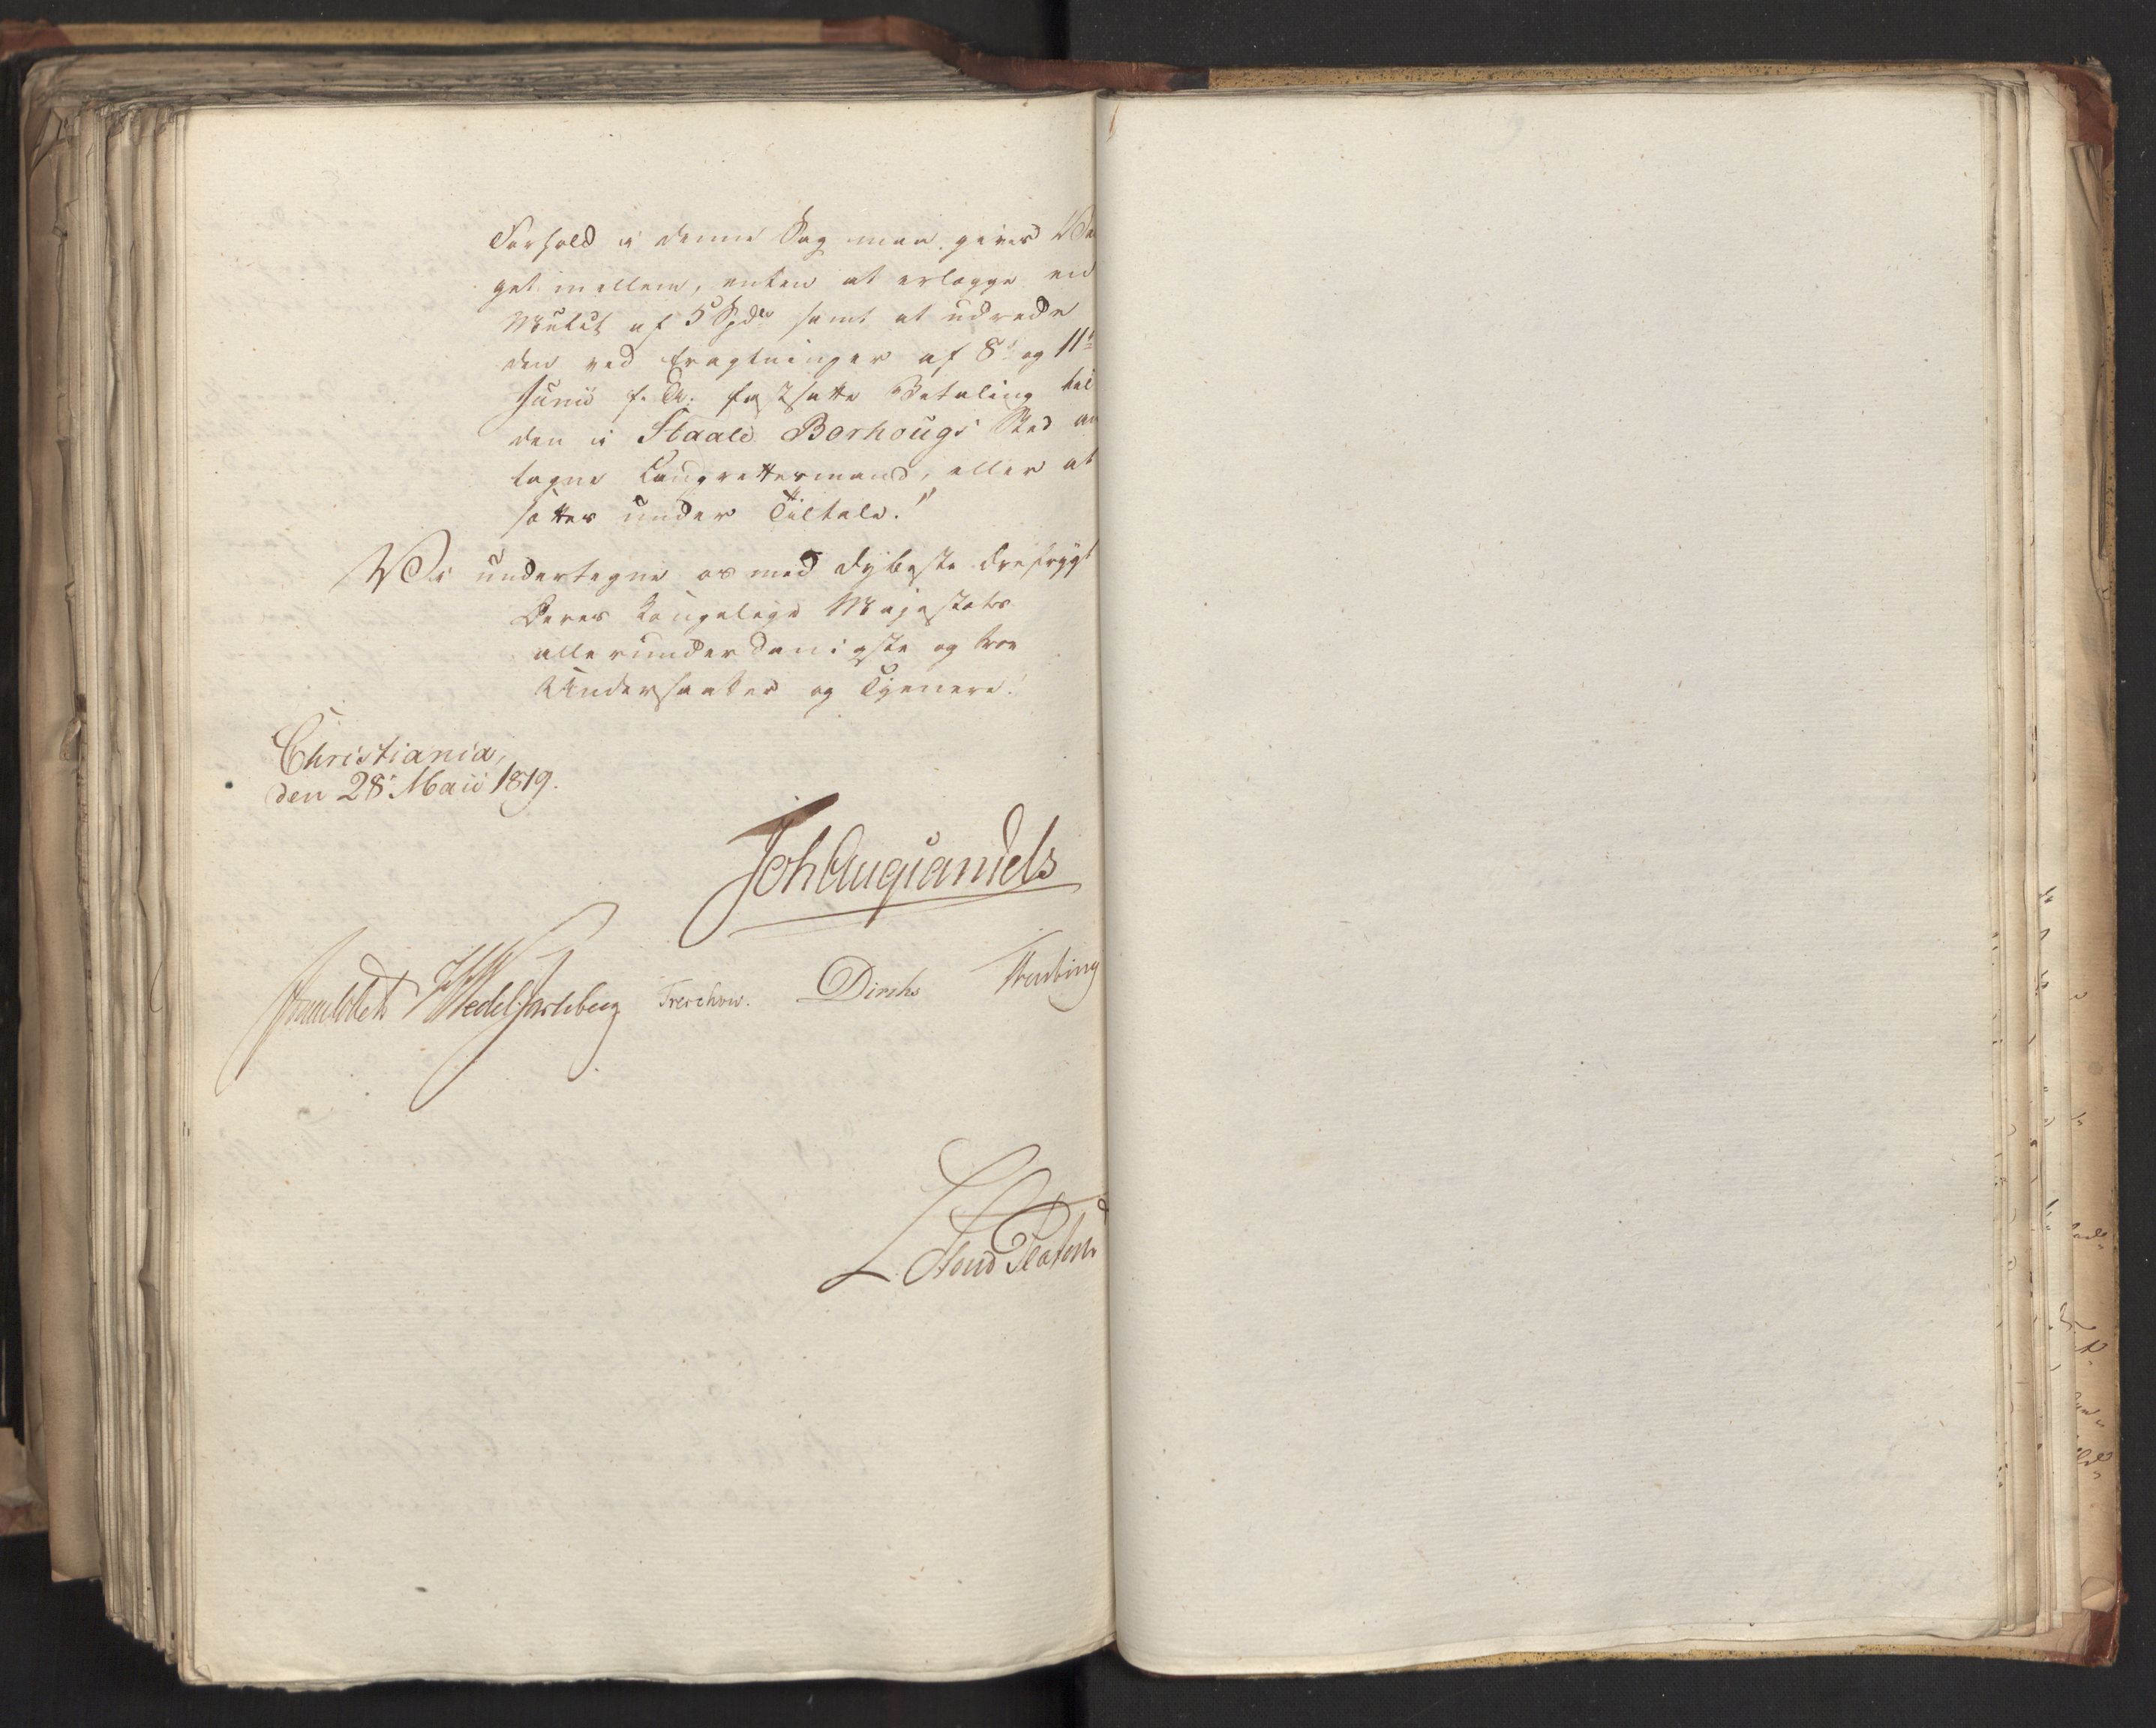 Forhold i denne Sag maa gives Val
get imellem, enten at erlægge en
Mulct af 5 Spdr samt at udrede
den ved Kragtninger af 8de og 11te
Junii f. A. fastsatte Betaling til
den i Staale Borhougs Sted an
tagne Laugrettesmand, eller at
sættes under Tiltale."
Vi undertegne os med dybeste Ærefrygt
Deres Kongelige Majestæts
allerunderdanigste og troe
Undersaatter og Tjenere.
Christiania,
den 28de Maii 1819.
Joh Aug Sandels
Sommerhielm HWedel Jarlsberg Treschow. Diriks Krebting
L. Stoud Platou